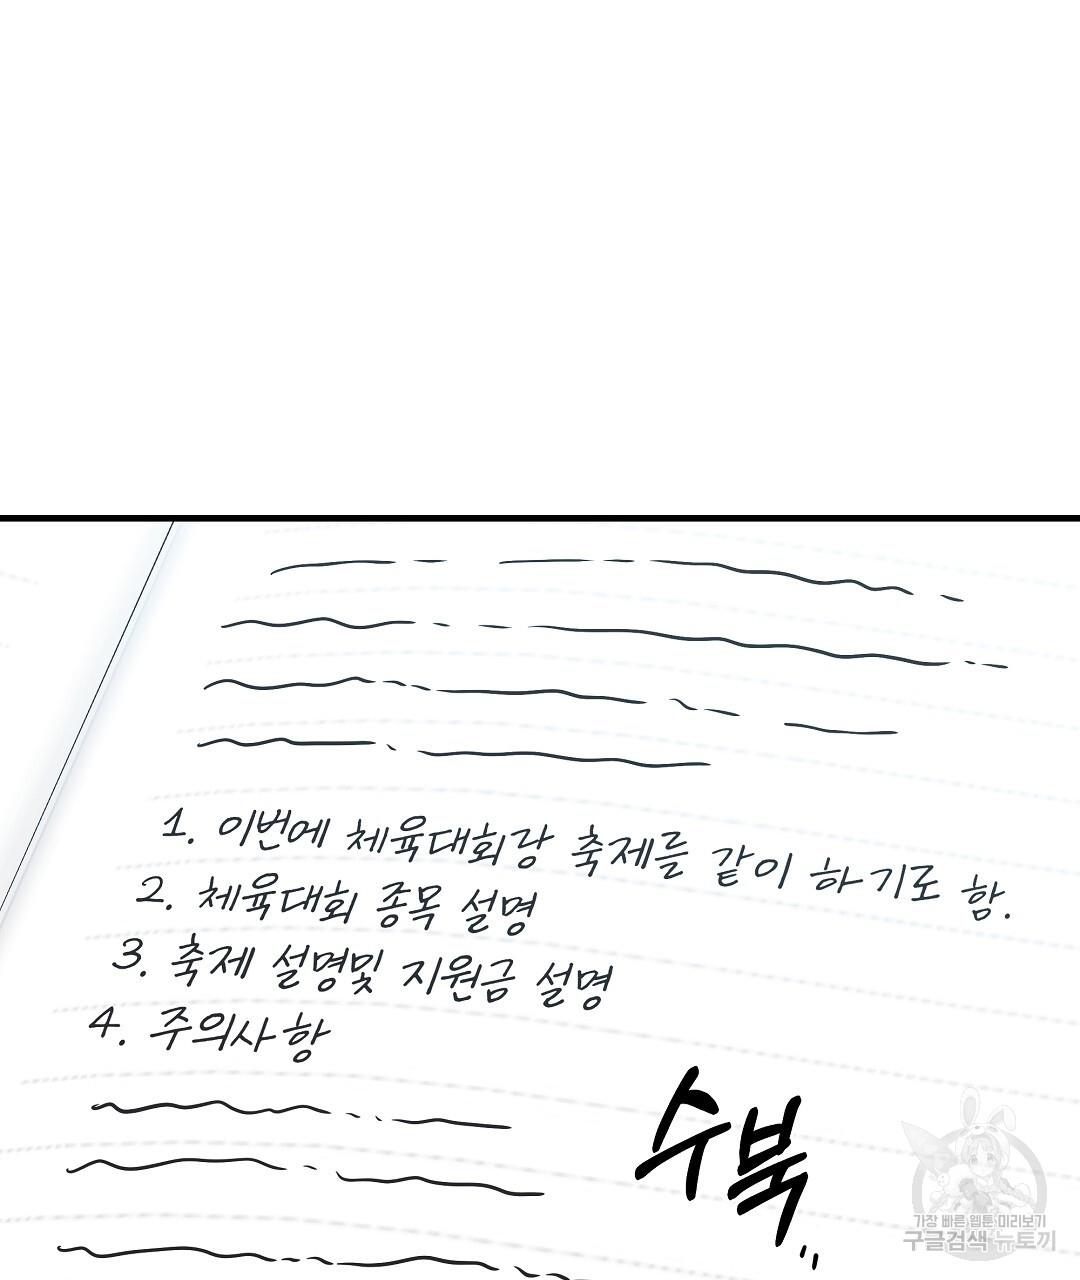 1. 이번에 체육대회랑 축제를 같이 하기로 함.
2. 체육대회 종목 설명
3. 축제 설명및 지원금 설명
4. 주의사항
수북..
가장 빠른 웹툰 미리보기
구글검색 뉴토끼